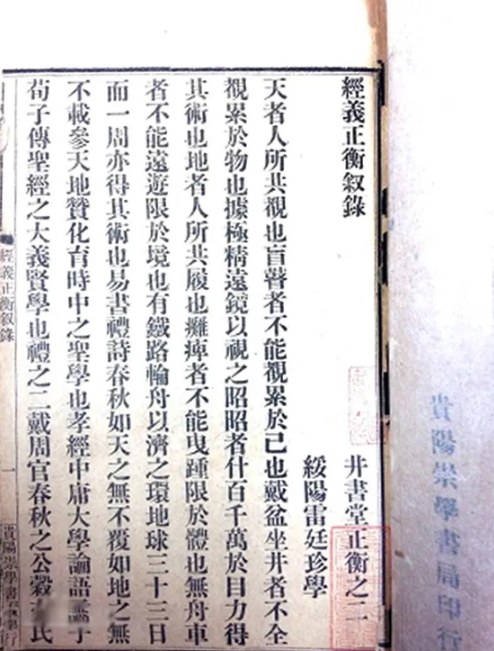 經義正衡叙錄
井書堂正衡之二
綏陽雷廷珍學
天者人所共覩也盲瞽者不能覩累於己也戴盆坐井者不全
覩累於物也據極精遠鏡以視之昭昭者什百千萬於目力得
其術也地者人所共履也癱痺者不能曳踵限於體也無舟車
者不能遠遊限於境也有鐵路輪舟以濟之環地球三十三日
而一周亦得其術也易書禮詩春秋如天之無不覆如地之無
不載參天地贊化育時中之聖學也孝經中庸大學論語孟子
荀子傳聖經之大義賢學也禮之二戴周官春秋之公穀氏
經義正衡叙錄
一
貴陽崇學書局印行